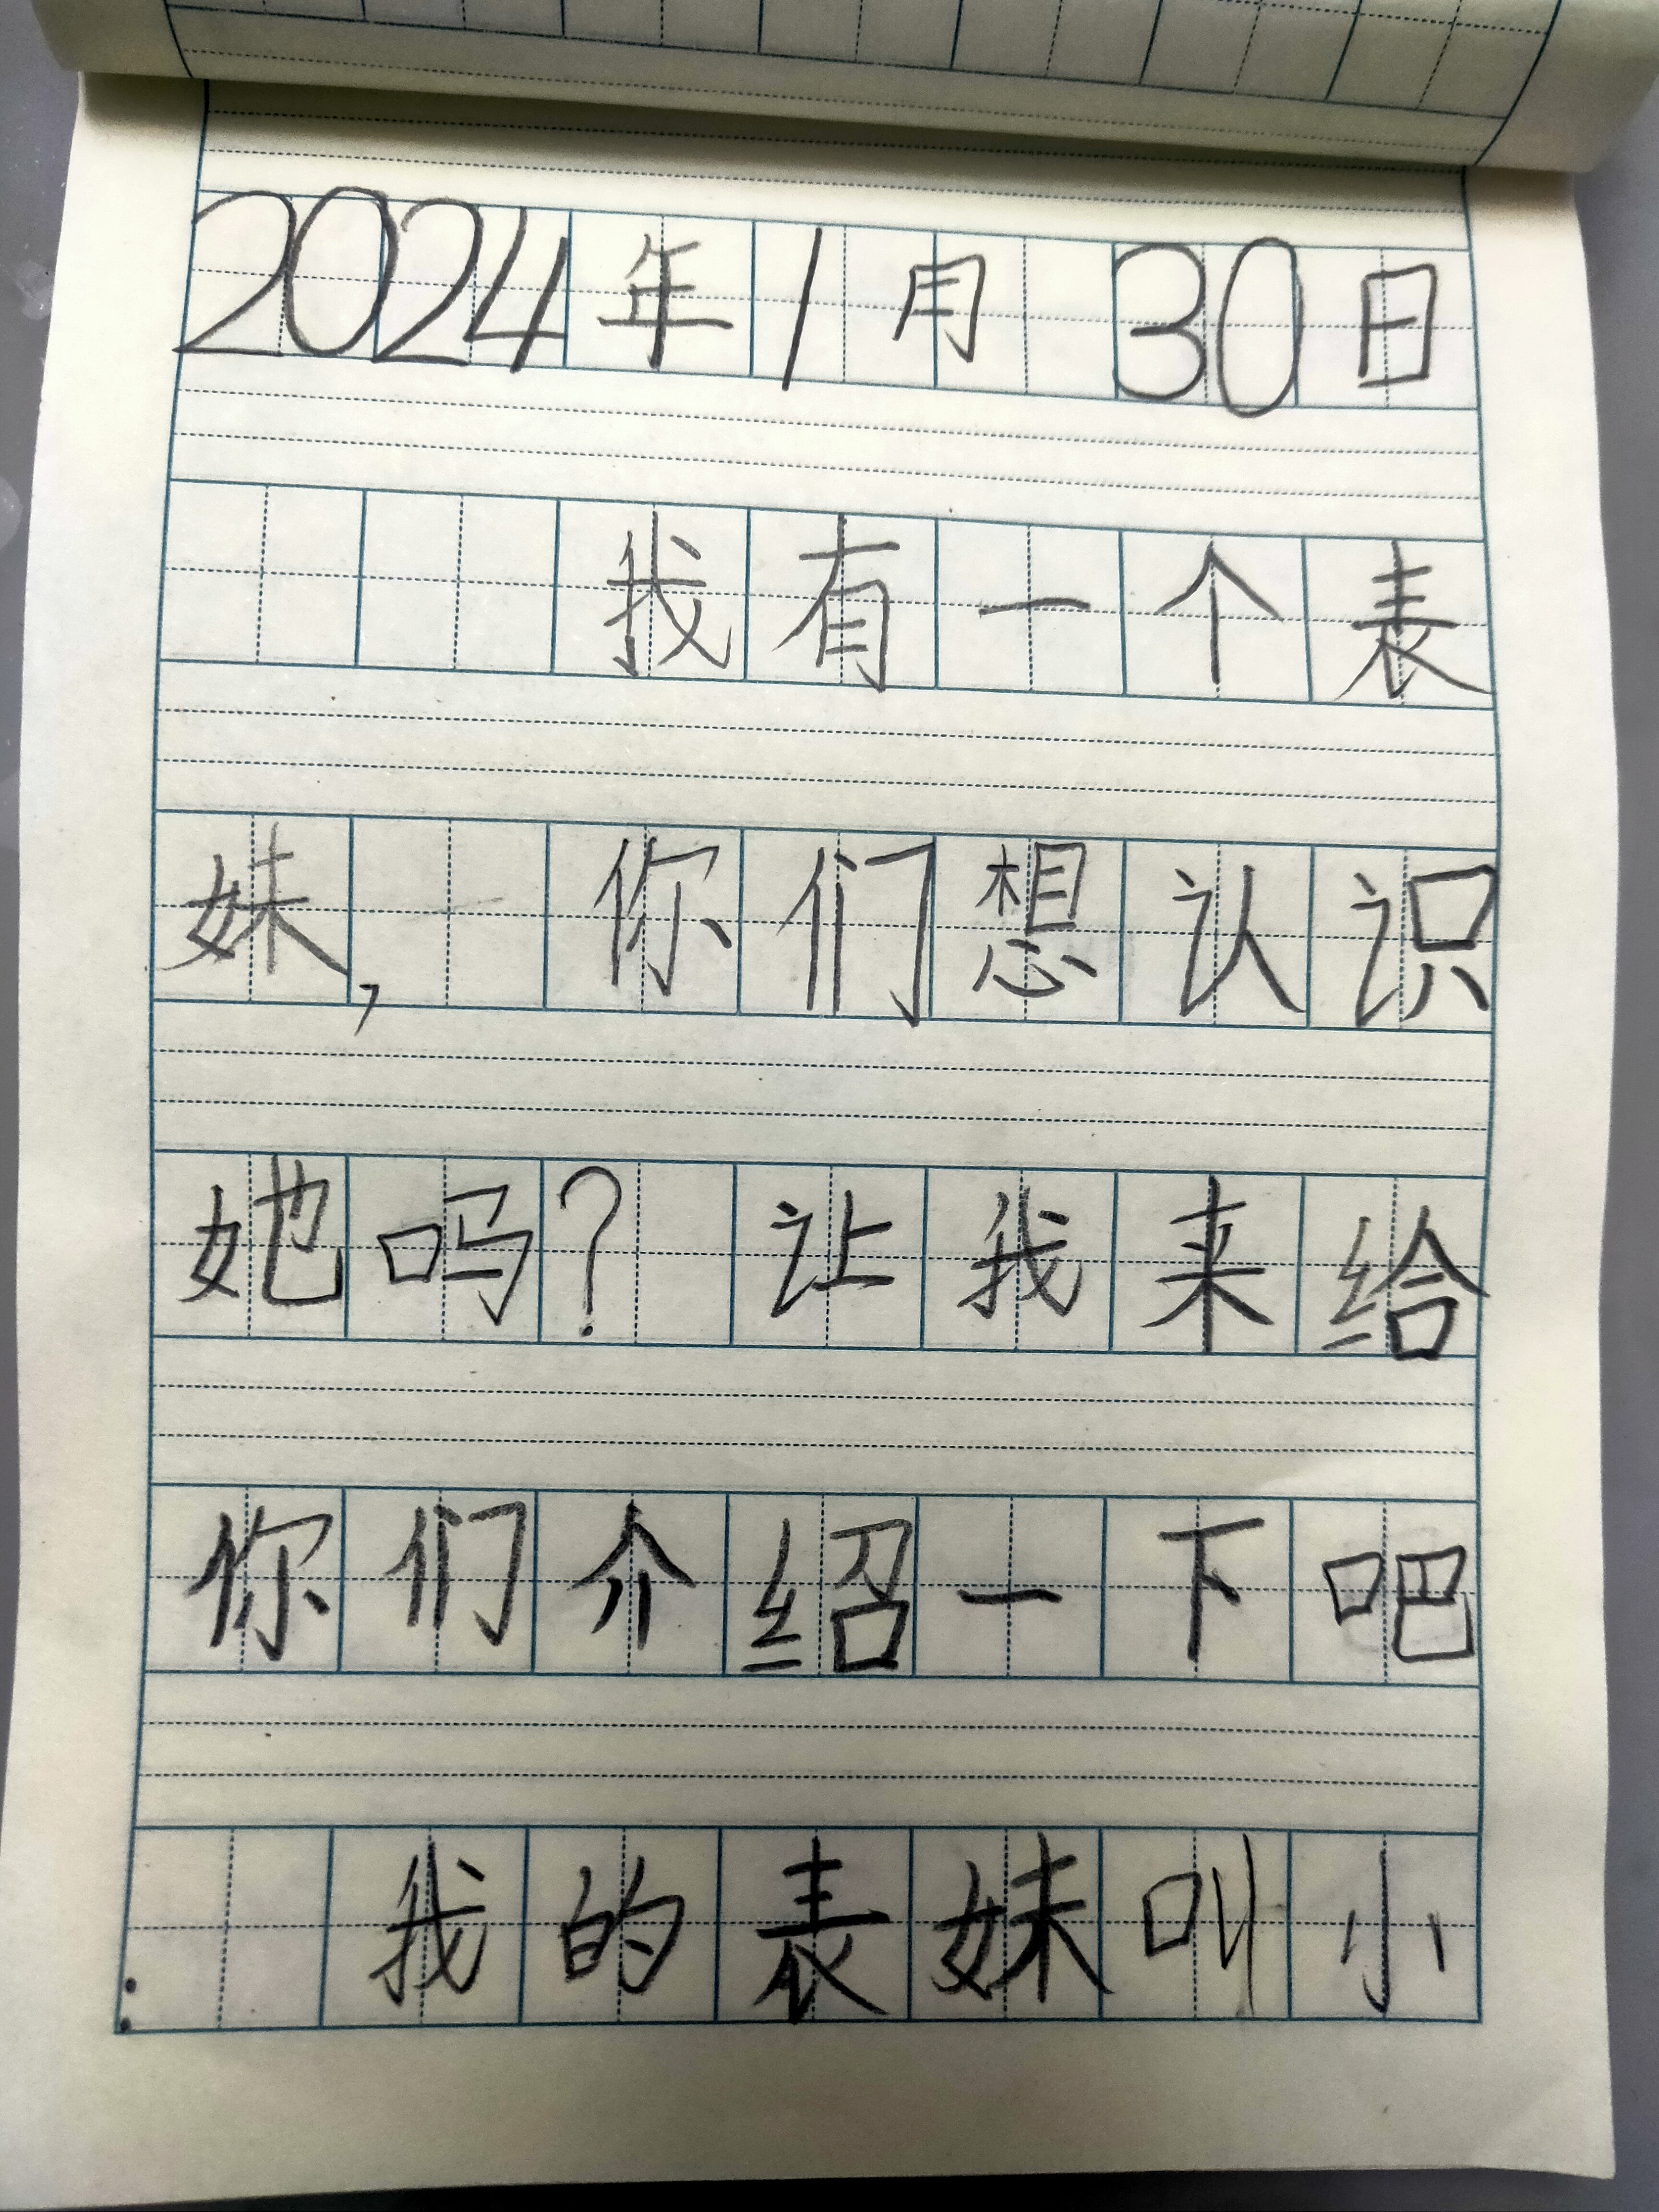 2024年1月30日
我有一个表
妹,你们想认识
她吗?让我来给
你们介绍一下吧
:我的表妹叫小